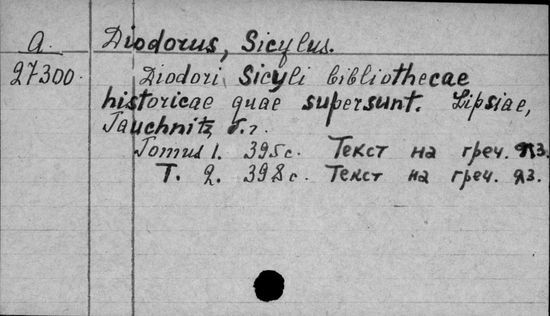 a.
Diodorus, Sicylus.
27300.
Diodori Sicyli bibliothecae
historicae quae supersunt. Lipsiae,
Tauchnitz, б.г.
Tomus 1. 395с. Текст на греч. яз.
T. 2. 398с. Текст на греч. яз.